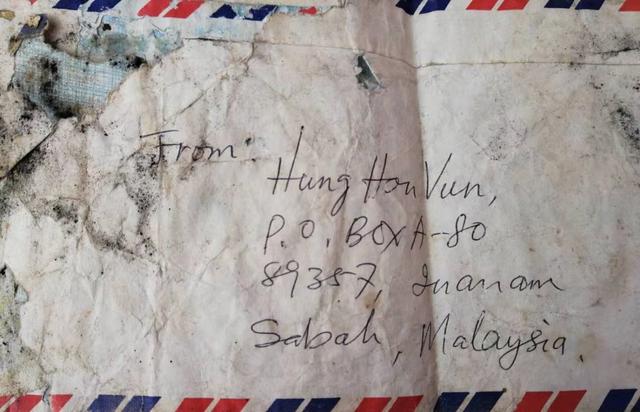 From:
Hung Hon Vun,
P.O. BOX A-80
89357, Inanam
Sabah, Malaysia.